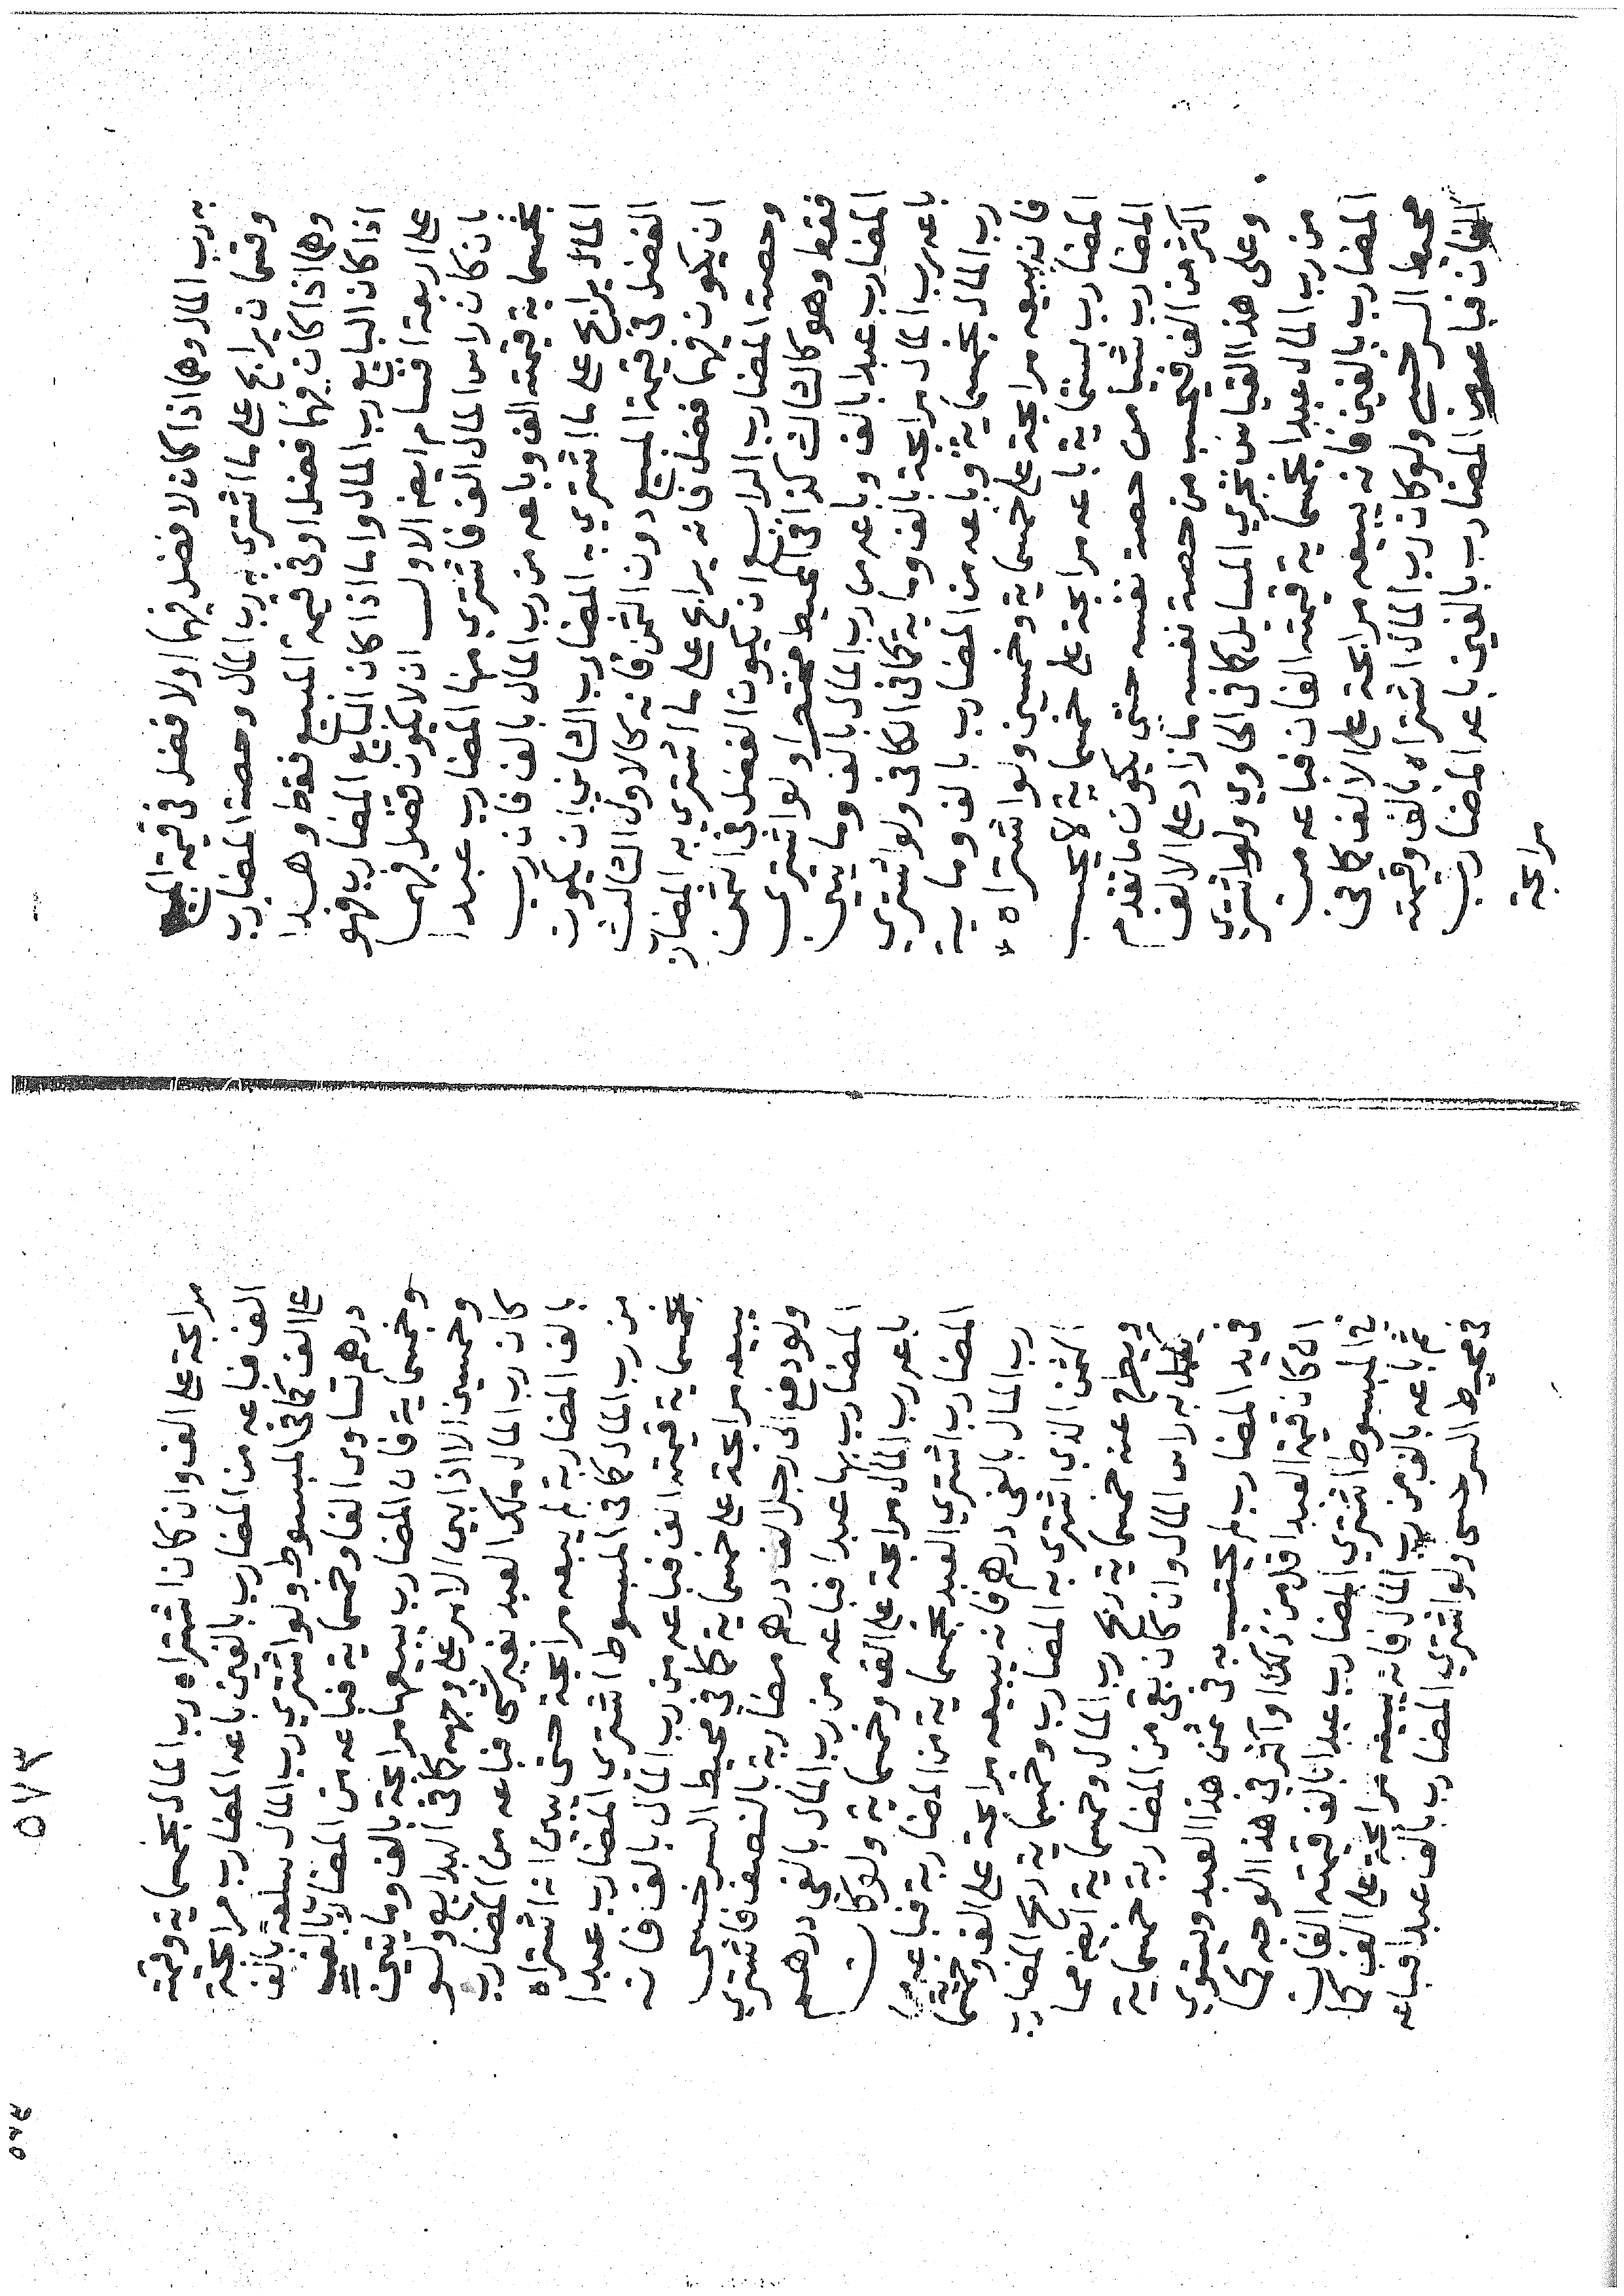 به رب المال وهما اذا كان لا فضل فيهما اولا فضل في قيمة المبيع
وقسمان يرابح على ما اشترى به رب المال وحصة المضارب
وهما اذا كان فيهما فضل او في قيمة المبيع فقط وهذا
اذا كان البايع رب المال واما اذا كان البايع المضارب فهو
على اربعة اقسام ايضا الاول ان لا يكون فضل فيهما
بان كان راس المال الف فاشترى منها المضارب عبدا
بخمسماية قيمته الف وباعه من رب المال بالف فان رب
المال يرابح على ما اشترى به المضارب الثاني ان يكون
الفضل في قيمة المبيع دون الثمن فانه كالاول الثالث
ان يكون فيهما فضل فانه يرابح على ما اشترى به المضارب
وحصة المضارب الرابع ان يكون الفضل في الثمن
فقط وهو كالثالث كذا في المحيط مختصرا ولو اشترى
المضارب عبدا بالف وباعه من رب المال بالف ومايتين
باعه رب المال مرابحة بالف وماية كما في الكافي ولو اشترى
رب المال بخمسماية وباعه من المضارب بالف وماية
فانه يبيعه مرابحة على خمسماية وخمسين ولو اشتراه
المضارب بستماية باعه مرابحة على خمسماية لا يحسب
المضارب شيا من حصة نفسه حتى يكون ما نقدم
اكثر من الف فيحسب من حصة نفسه ما زاد على الالف
وعلى هذا القياس تجري المسايل كما في الحاوي ولو اشترى
من رب المال عبدا بخمسماية قيمته الفان فباعه من
المضارب بالفين فانه يبيعه مرابحة على الالف كما في
محيط السرخسي ولو كان رب المال اشتراه بالف وقيمته
الفان فباعه من المضارب بالفين باعه المضارب
مرابحة
٥٧٣
مرابحة على الف وان كان اشتراه رب المال بخمسماية وقيمته
الف فباعه من المضارب بالفين باعه المضارب مرابحة
على الف كما في المبسوط ولو اشترى رب المال سلعة بالف
درهم تساوي الفا وخمسماية فباعه من المضارب بالف
وخمسماية فان المضارب يبيعها مرابحة بالف ومايتين
وخمسين الا اذا بين الامر على وجهه كما في البدايع ولو
كان رب المال ملك العبد بغير شي فباعه من المضارب
بالف المضاربة لم يبعه مرابحة حتى يبين انه اشتراه
من رب المال كما في المبسوط اشترى المضارب عبدا
بخمسماية قيمته الف فباعه من رب المال بالف فانه
يبيعه مرابحة على خمسماية كما في محيط السرخسي
ولو دفع الى رجل الف درهم مضاربة بالنصف فاشترى
المضارب بها عبدا فباعه من رب المال بالفي درهم
باعه رب المال مرابحة على الف وخمسماية ولو كان
المضارب اشترى العبد بخمسماية من المضاربة فباعه من
رب المال بالفي درهم فانه يبيعه مرابحة على الف وخمسماية
الثمن الذي اشترى به المضارب وخمسماية ربح المضارب
ويطرح عنه خمسماية ربح رب المال وخمسماية ايضا مما
يكمل به راس المال وان كان بقي من المضاربة خمسماية
في يد المضارب لم يحتسب به في ثمن هذا العبد ويستوي
ان كان قيمة العبد اقل من ذلك او اكثر في هذا الوجه كما
في المبسوط اشترى المضارب عبدا بالف قيمته الفان
ثم باعه بالف من رب المال فانه يبيعه مرابحة على الف كما
في محيط السرخسي ولو اشترى المضارب بالف عبدا فباعه